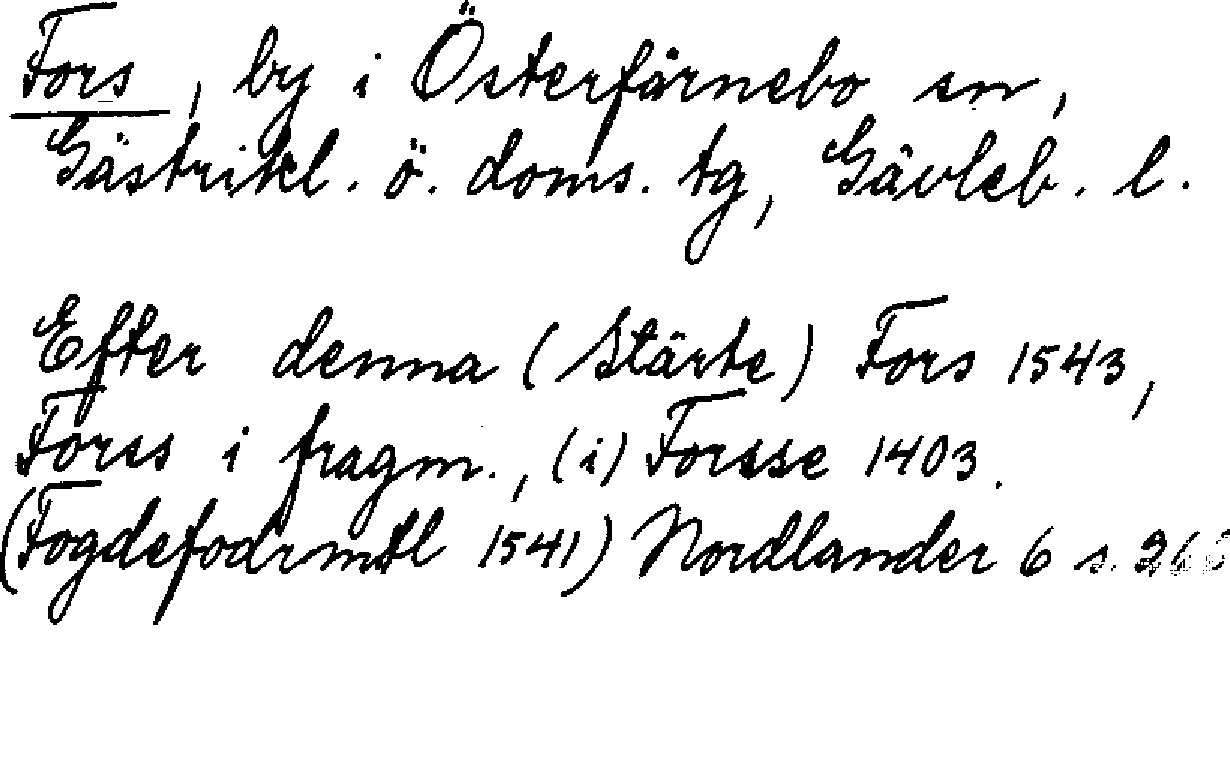 Fors, by i Österfärnebo sn,
Gästrikl. ö. doms. tg, Gävleb. l.
Efter denna (Stärte) Fors 1543,
Forss i fragm., (i) Forsse 1403.
(Fogdefodrmtl 1541) Nordlander 6 s.